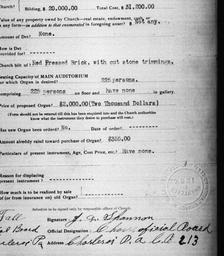 Church? Bilding, $ 20,000.00 Total Cost, $ 31,200.00
Value of any property owned by Church—real estate, endowment, cash or
any form—in addition to that enumerated in foregoing answer? $ Not any.
Amount of Debt? None.
How is Debt
provided for?
Church bilt of Red Pressed Brick, with cut stone trimmings.
Seating Capacity of MAIN AUDITORIUM
for which Organ is desired? 225 persons.
comprising 225 persons on floor and have none in gallery.
Price of proposed Organ? $2,000.00(Two Thousand Dollars)
(Form should not be returned till this has been inquired into and the Church authorities
know what the instrument they desire to purchase will cost.)
Has new Organ been ordered? No. Date of order?
Amount already raised toward purchase of Organ? $350.00
Particulars of present instrument, Age, Cost Price, etc.? Have none.
Reason for displacing
present instrument?
How much is to be realized for sale
(or from insurance) on old Organ?
Signature J. G. Shannon
Official Designation Official Board
Address Charleroi Pa. 213